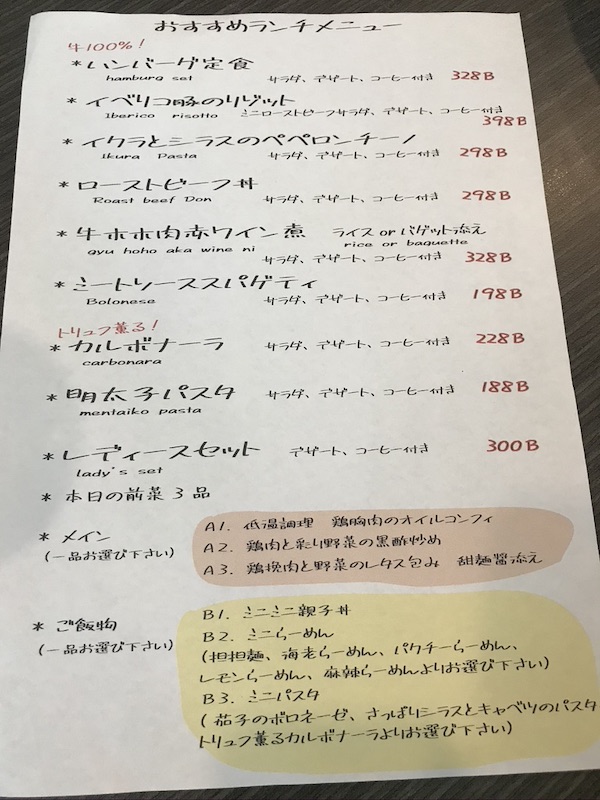 おすすめランチメニュー
牛100%!
* ハンバーグ定食
hamburg set サラダ、デザート、コーヒー付き 328B
* イベリコ豚のリゾット
Iberico risotto ミニローストビーフサラダ、デザート、コーヒー付き
398B
* イクラとシラスのペペロンチーノ
Ikura Pasta サラダ、デザート、コーヒー付き 298B
* ローストビーフ丼
Roast beef Don サラダ、デザート、コーヒー付き 298B
* 牛ホホ肉赤ワイン煮 ライス or バゲット添え
gyu hoho aka wine ni rice or baguette
サラダ、デザート、コーヒー付き 328B
* ミートソーススパゲティ
Bolonese サラダ、デザート、コーヒー付き 198B
トリュフ薫る!
* カルボナーラ サラダ、デザート、コーヒー付き 228B
carbonara
* 明太子パスタ サラダ、デザート、コーヒー付き 188B
mentaiko pasta
* レディースセット デザート、コーヒー付き 300B
lady's set
* 本日の前菜3品
* メイン
(一品お選び下さい)
A1. 低温調理 鶏胸肉のオイルコンフィ
A2. 鶏肉と彩り野菜の黒酢炒め
A3. 鶏挽肉と野菜のレタス包み 甜麺醤添え
* ご飯物
(一品お選び下さい)
B1. ミニミニ親子丼
B2. ミニらーめん
(担担麺、海老らーめん、パクチーらーめん、
レモンらーめん、麻辣らーめんよりお選び下さい)
B3. ミニパスタ
(茄子のボロネーゼ、さっぱりシラスとキャベツのパスタ
トリュフ薫るカルボナーラよりお選び下さい)